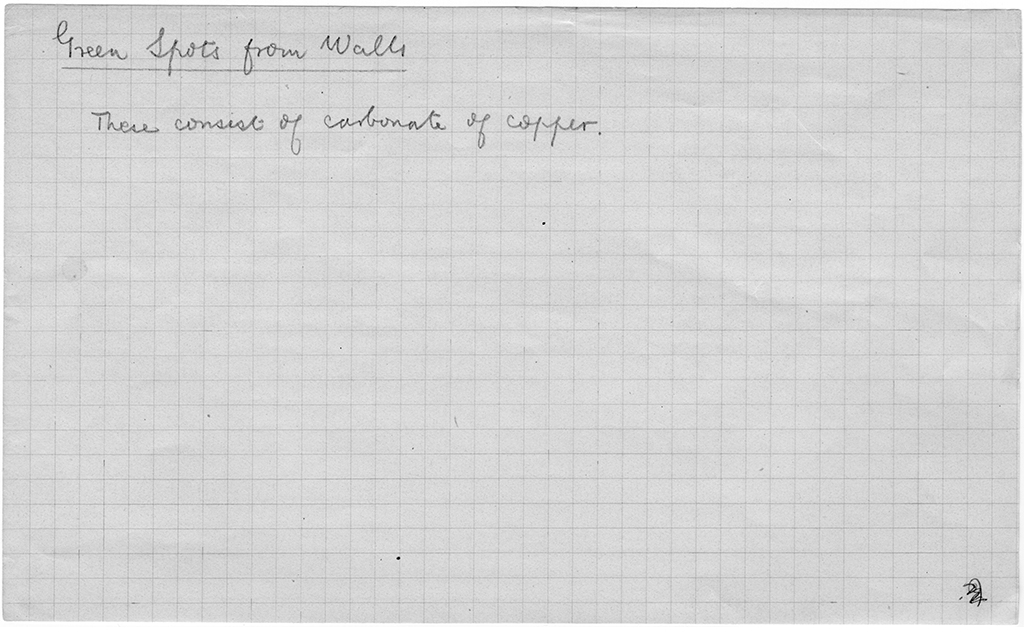 Green Spots from Walls
These consist of carbonate of copper.